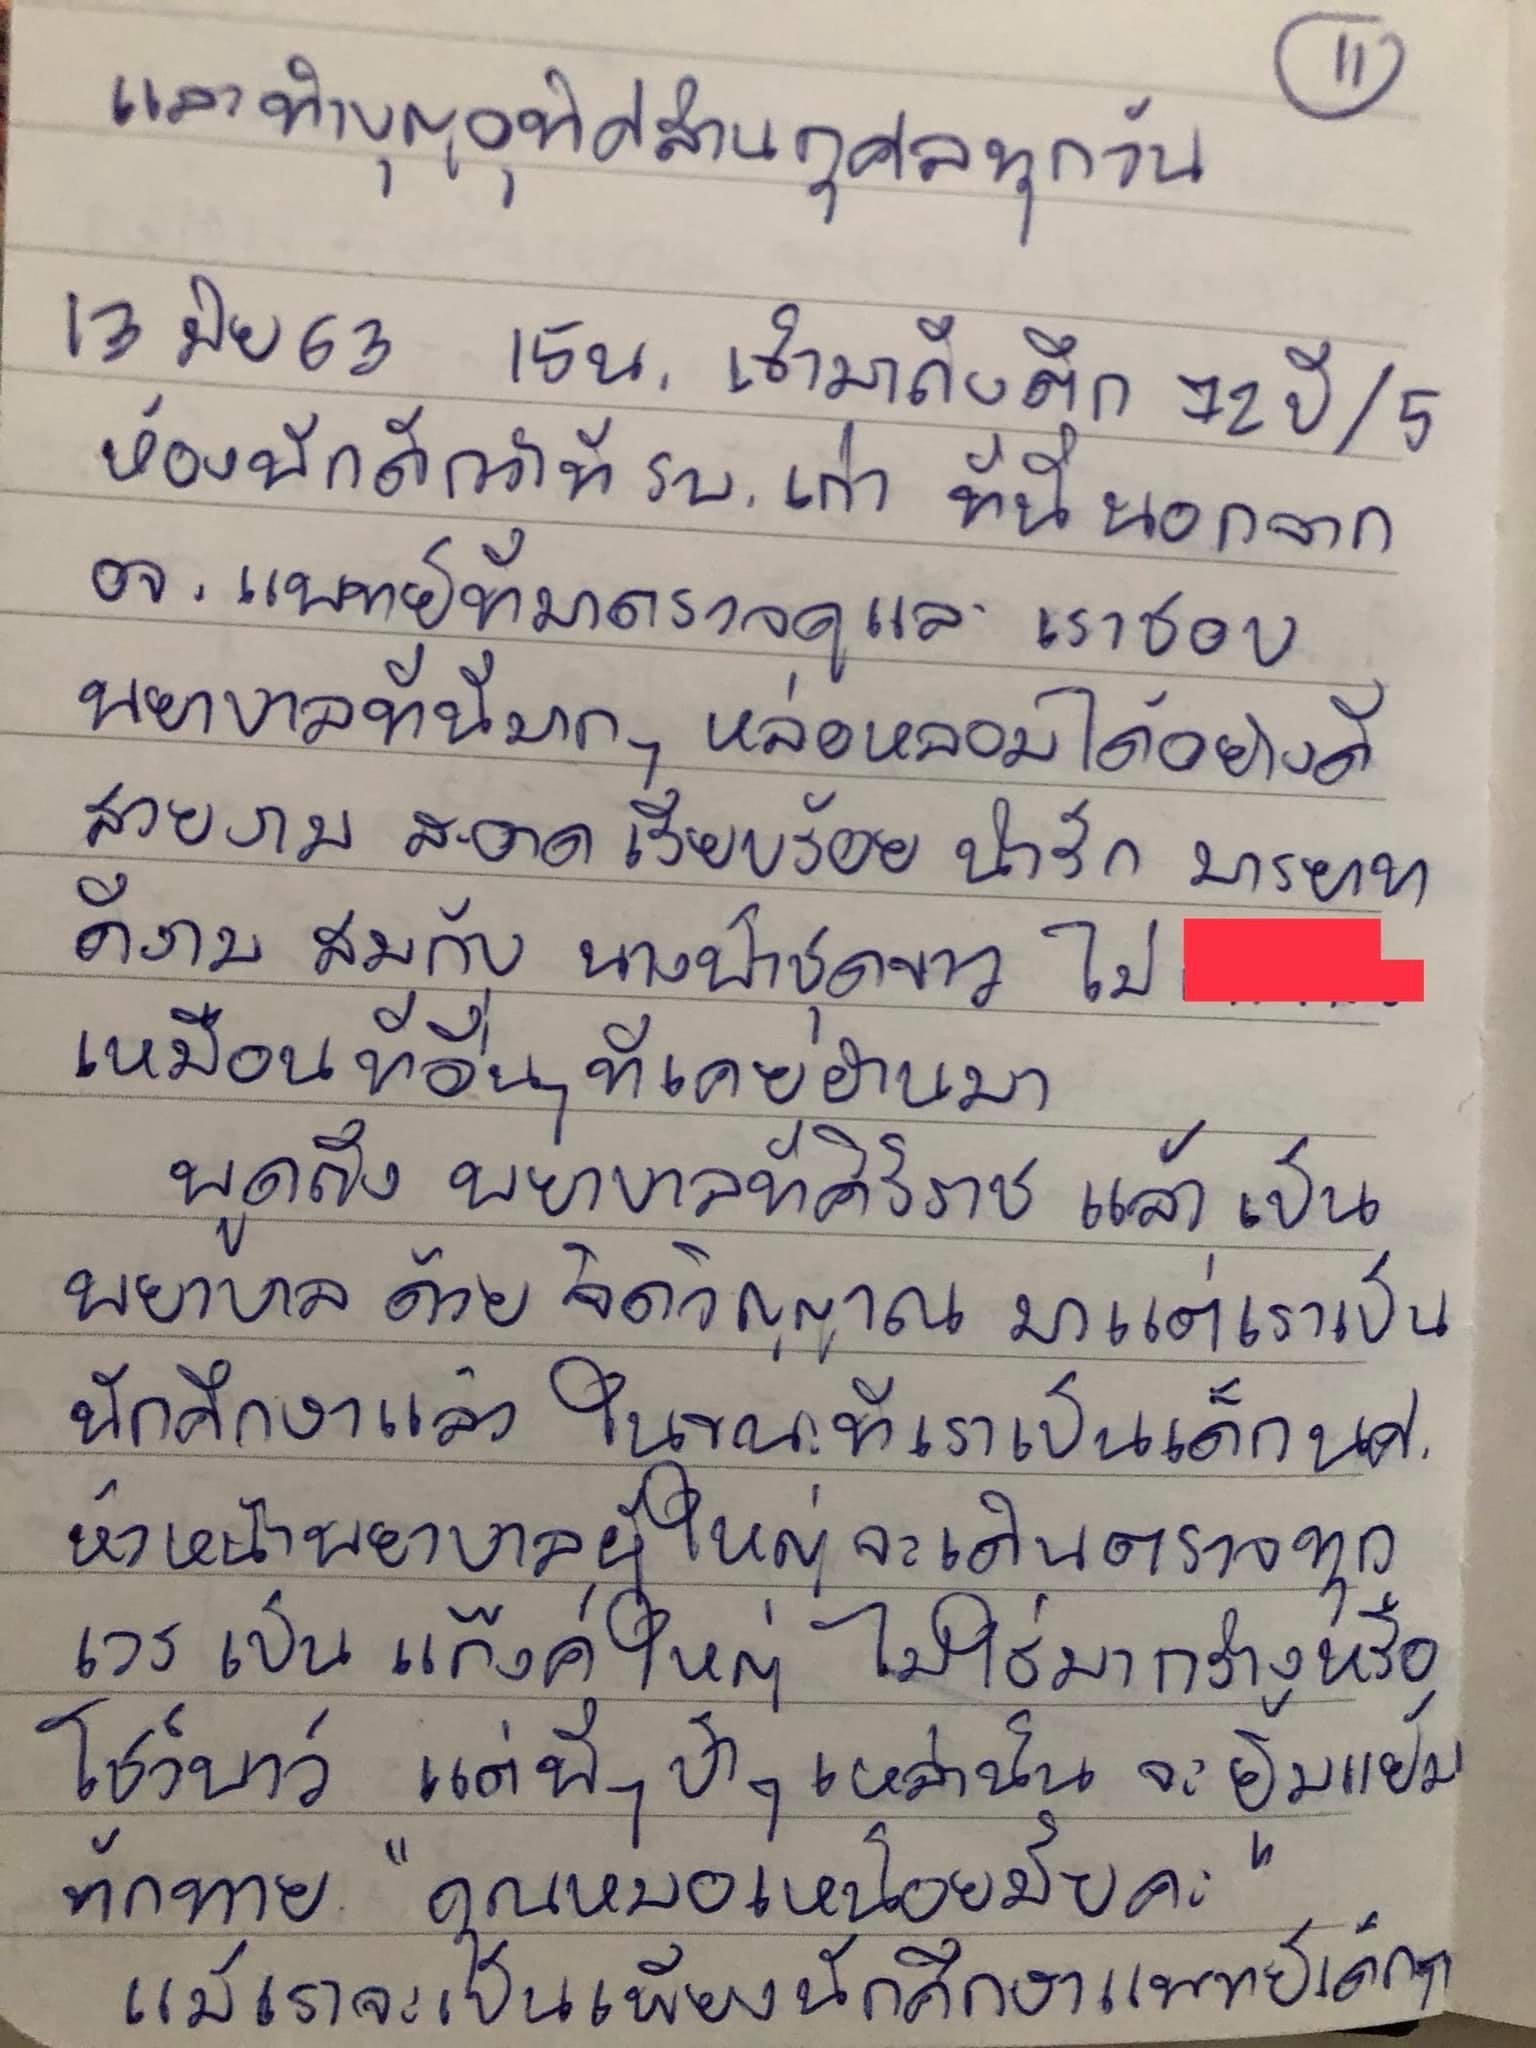 11
และทำบุญอุทิศส่วนกุศลทุกวัน
13 มิย 63 15น. เข้ามาถึงตึก 72 ปี/5
ห้องพักดีกว่าที่ รพ. เก่า ที่นี่นอกจาก
อจ. แพทย์ที่มาตรวจดูแล เราชอบ
พยาบาลที่นี่มากๆ หล่อหลอมได้อย่างดี
สวยงาม สะอาด เรียบร้อย น่ารัก มารยาท
ดีงาม สมกับ นางฟ้าชุดขาว ไม่
เหมือนที่อื่นๆ ที่เคยผ่านมา
พูดถึง พยาบาลที่ศิริราช แล้ว เป็น
พยาบาล ด้วย จิตวิญญาณ มาแต่เราเป็น
นักศึกษาแล้ว ในขณะที่เราเป็นเด็ก นศ.
หัวหน้าพยาบาลผู้ใหญ่จะเดินตรวจทุก
เวร เป็น แก๊งค์ใหญ่ ไม่ใช่มากร่างหรือ
โชว์พาว์ แต่พี่ๆ ป้าๆ เหล่านั้น จะยิ้มแย้ม
ทักทาย "คุณหมอเหนื่อยมั้ยคะ"
แม้เราจะเป็นเพียงนักศึกษาแพทย์เด็กๆ